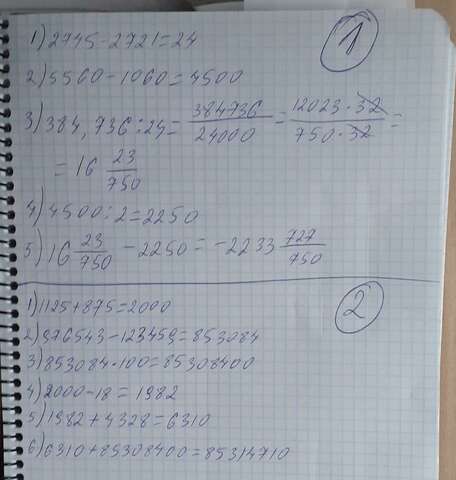 1
1) 2745-2721=24
2) 5560-1060=4500
3) 384,736:24= 384736/24000 = 12023·32/750·32 =
= 16 23/750
4) 4500:2=2250
5) 16 23/750 -2250= -2233 727/750
2
1) 1125+875=2000
2) 976543-123459=853084
3) 853084·100=85308400
4) 2000-18=1982
5) 1982+4328=6310
6) 6310+85308400=85314710